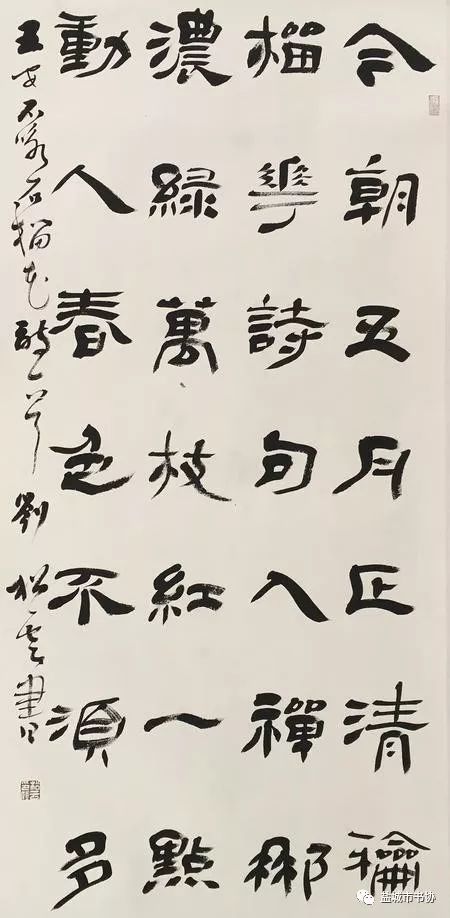 今朝五月正清龢
榴華詩句入禪那
濃綠萬枝紅一點
動人春色不須多
王安石咏石榴花詩一首 劉松雲書
盐城市书协